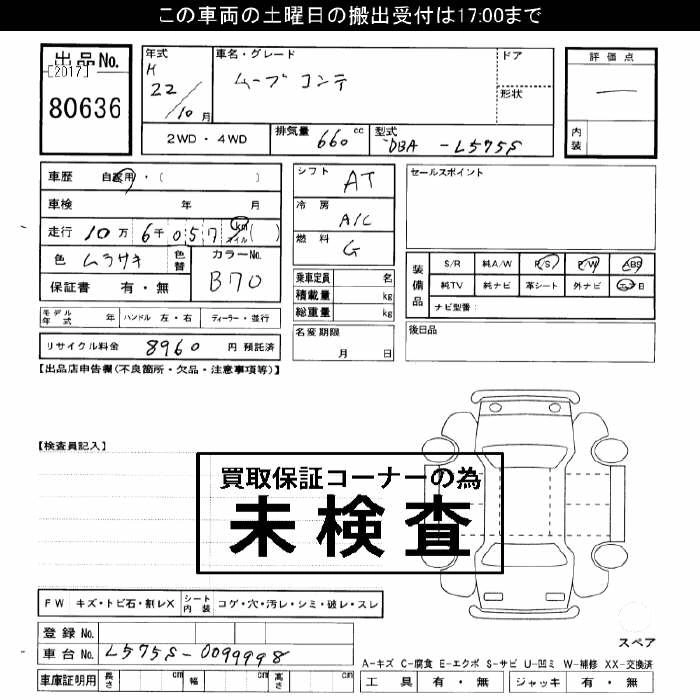 この車両の土曜日の搬出受付は17:00まで
出品No.
[2017]
80636
年式
H
22/10月
車名・グレード
ムーブ コンテ
ドア
形状
評価点
―
内装
2WD・4WD
排気量 660 cc
型式 DBA-L575S
車歴 自家用・( )
車検 年 月
走行 10万6千057 km マイル ( )
色 ムラサキ 色替
カラーNo.
B70
保証書 有・無
モデル年式 年 ハンドル 左・右 ディーラー・並行
リサイクル料金 8960 円 預託済
シフト AT
冷房 A/C
燃料 G
乗車定員 名
積載量 kg
総重量 kg
名変期限
月 日
セールスポイント
装備品
S/R 純A/W P/S P/W ABS
純TV 純ナビ 革シート 外ナビ エアB
ナビ型番:
後日品
【出品店申告欄(不良個所・欠品・注意事項等)】
【検査員記入】
買取保証コーナーの為
未検査
FW キズ・トビ石・割レX シート内装 コゲ・穴・汚レ・シミ・破レ・スレ
登録No.
車台No. L575S-0099998
車庫証明用 長さ cm 幅 cm 高さ cm
スペア
A-キズ C-腐食 E-エクボ S-サビ U-凹ミ W-補修 XX-交換済
工具 有・無 ジャッキ 有・無